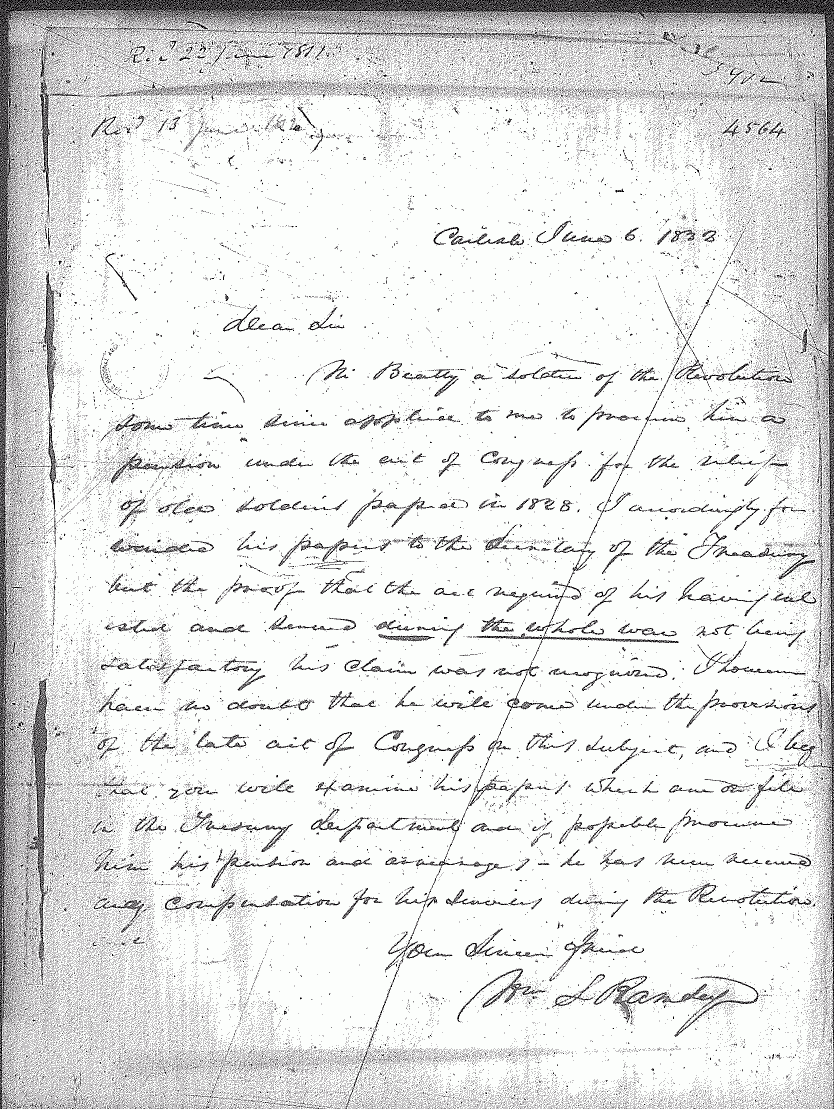 Rec'd 22 June 1811.
Rec'd 13 June
4564
Carlisle June 6. 1832
Dear Sir
Mr Beatty a soldier of the Revolution
some time since applied to me to procure him a
pension under the act of Congress for the relief
of old soldiers passed in 1828. I accordingly for
warded his papers to the Secretary of the Treasury
but the proof that the act required of his having enl
isted and served during the whole war not being
satisfactory his claim was not recognized. I however
have no doubt that he will come under the provisions
of the late act of Congress on this subject, and I beg
that you will examine his papers which are on file
in the Treasury department and if possible procure
him his pension and arrearages - he has never received
any compensation for his services during the Revolution.
Your Sincere Friend
Wm S Ramsey